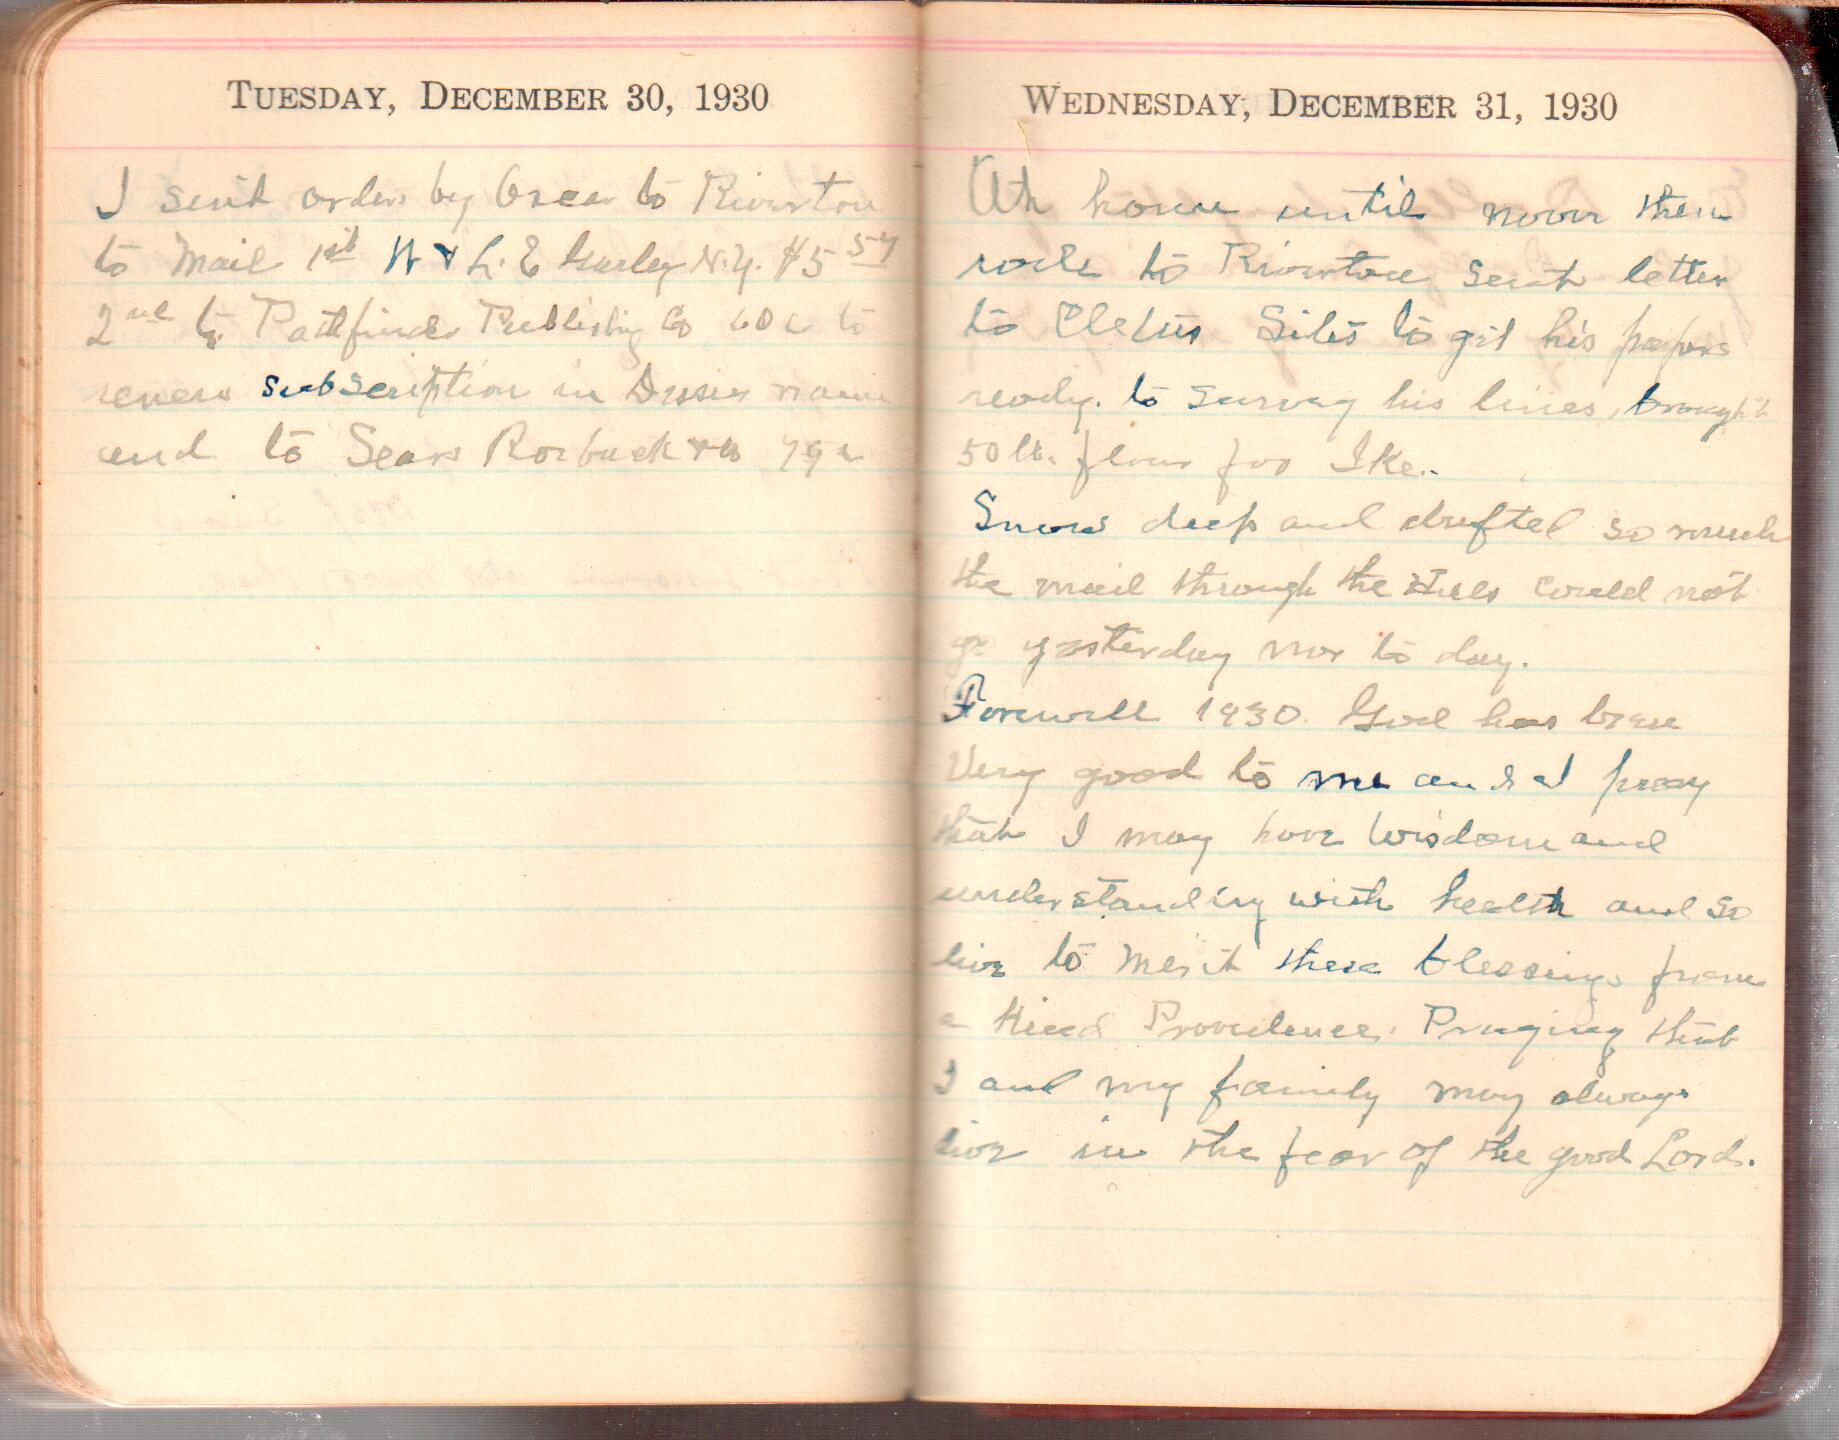 TUESDAY, DECEMBER 30, 1930
I sent order by Oscar to Riverton
to Mail 1st W & L. E Gurley N.Y. $5 57
2nd to Pathfinder Publishing Co 60c to
renew subscription in name
and to Sears Roebuck & Co 79c
WEDNESDAY, DECEMBER 31, 1930
At home until noon then
rode to Riverton Sent letter
to Cletus Siles to git his papers
ready. to Survey his lines, brought
50 lb. flour for Ike..
Snow deep and drifted so much
the mail through the Hills could not
go yesterday nor to day.
Farewell 1930. God has been
Very good to me and I pray
that I may have Wisdom and
understanding with health and so
live to Merit these blessings from
a Kind Providence. Praying that
I and my family may always
live in the fear of the good Lord.